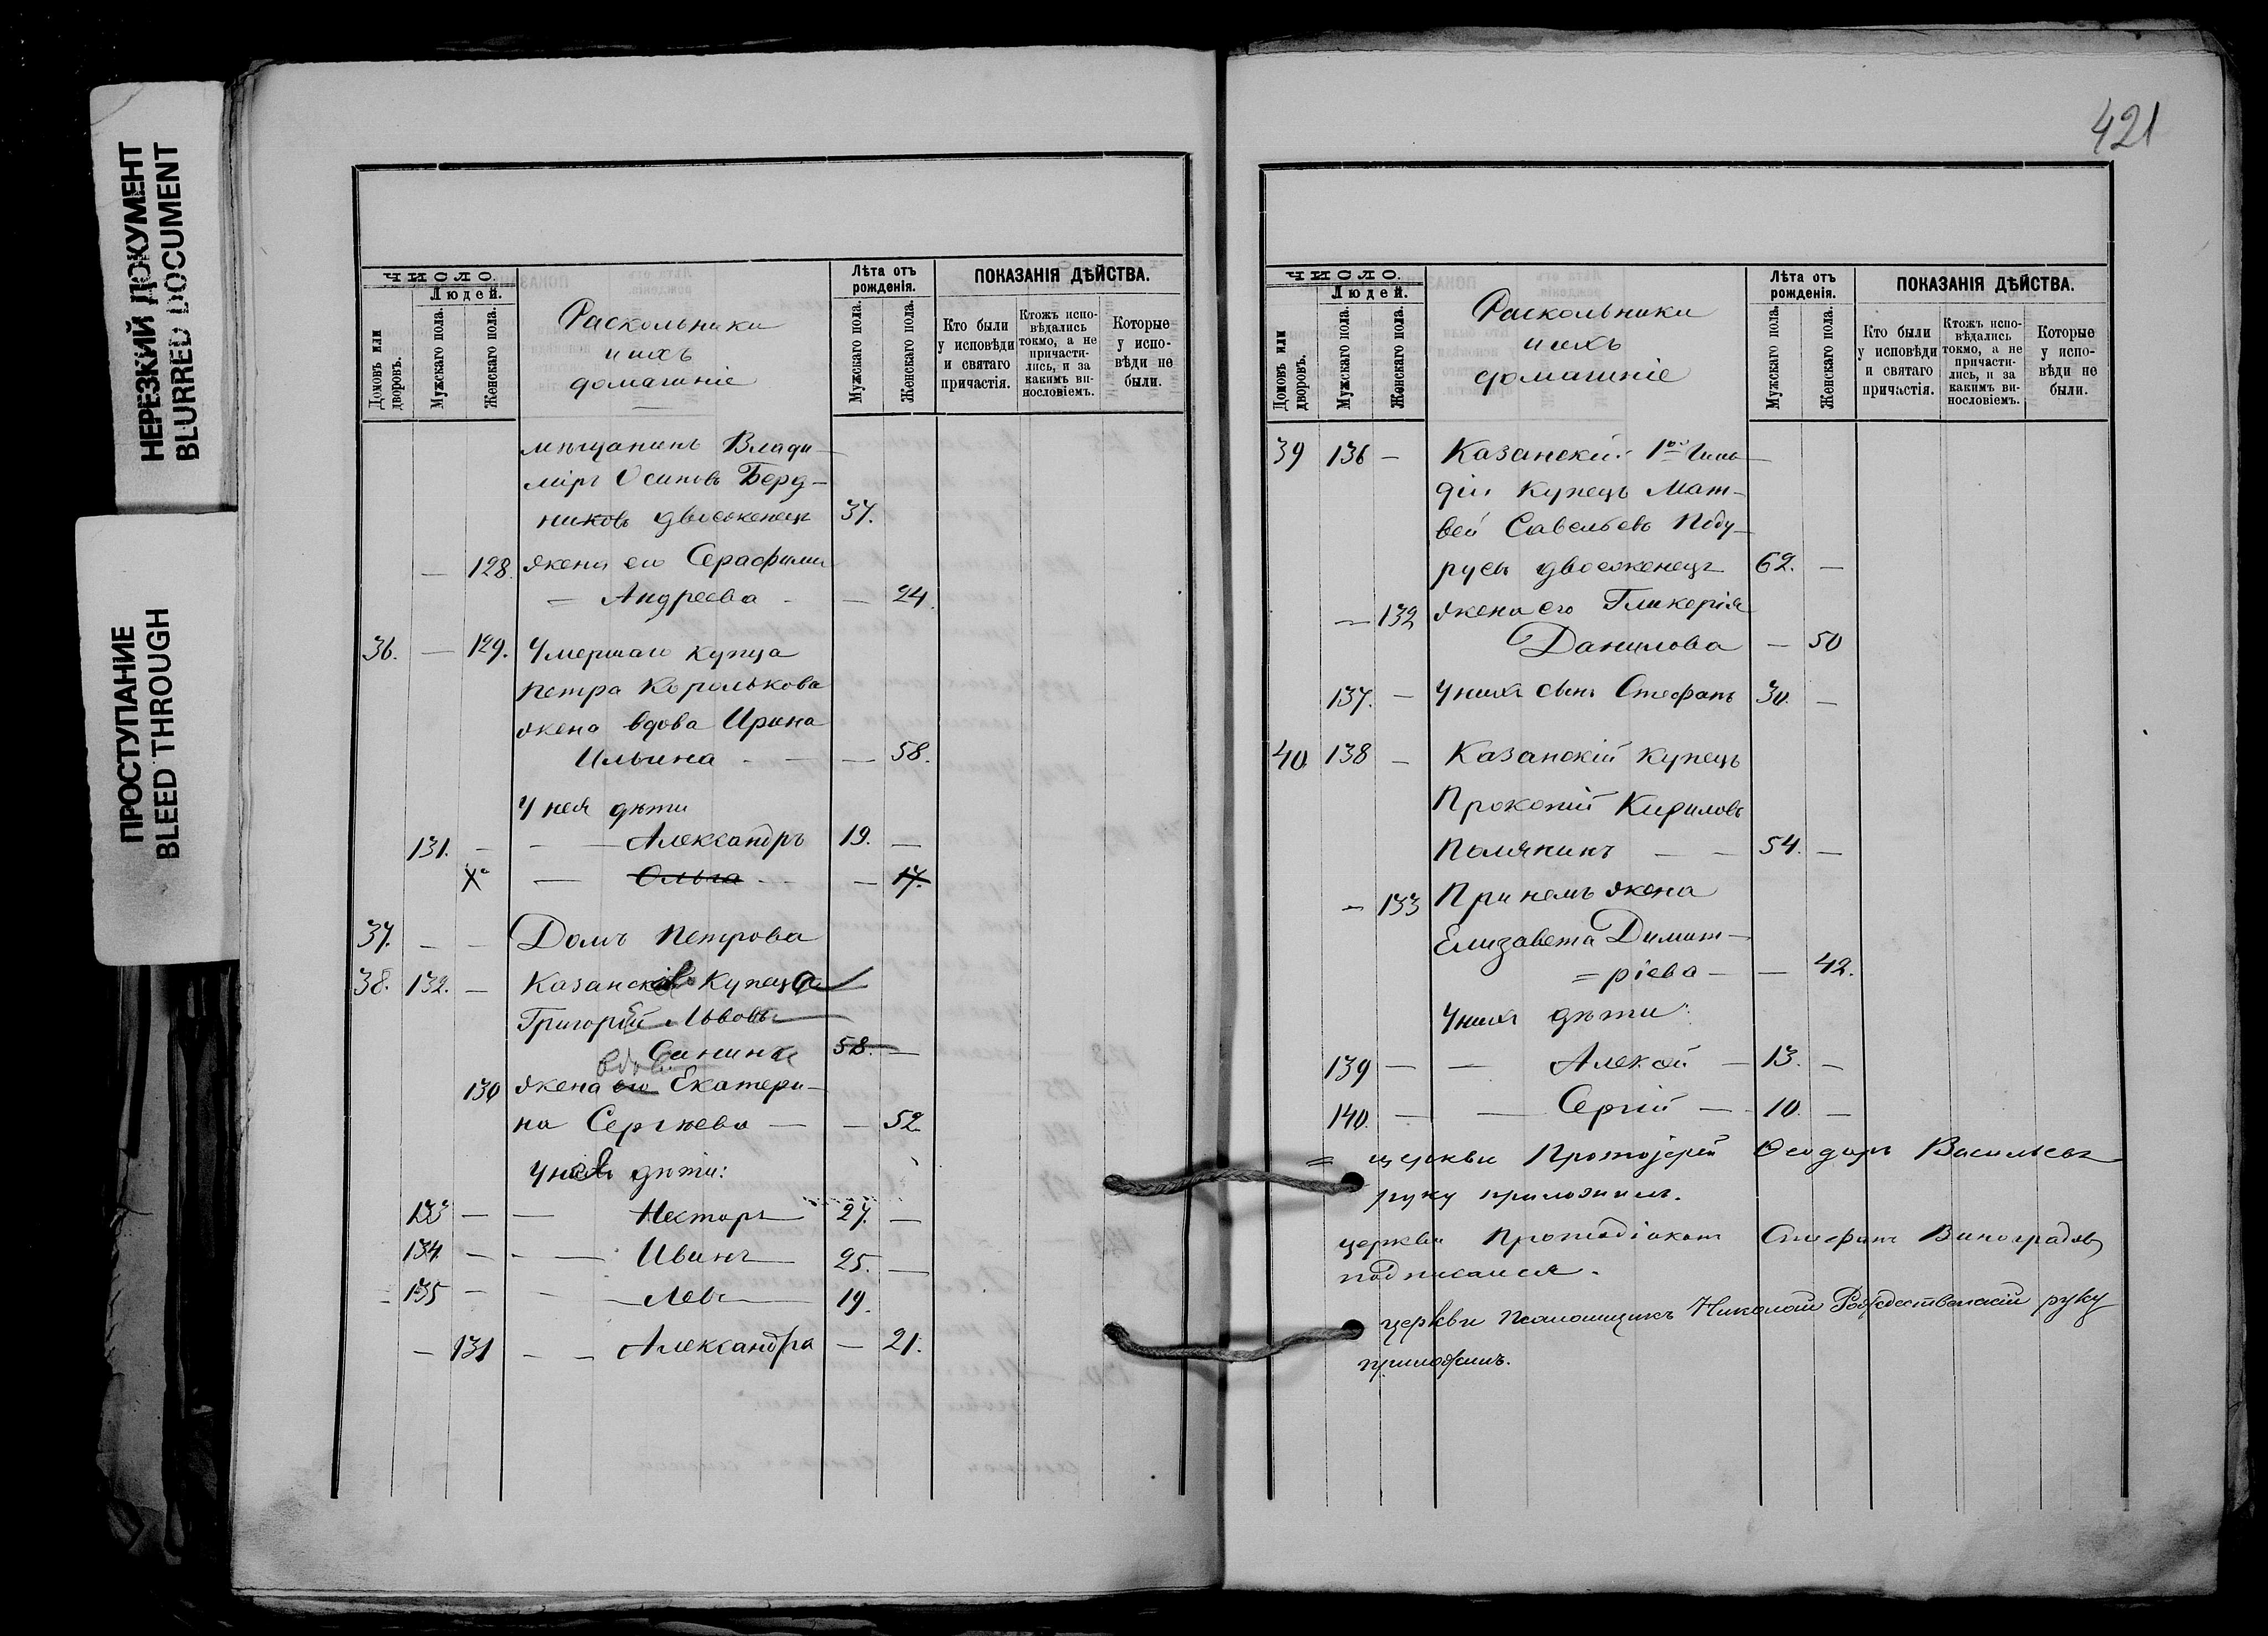 НЕРЕЗКИЙ ДОКУМЕНТ
BLURRED DOCUMENT
ПРОСТУПАНИЕ
BLEED THROUGH
ЧИСЛО.
Людей.
Домовъ или дворовъ.
Мужскаго пола.
Женскаго пола.
Раскольники
и ихъ
домашніе
Лѣта отъ рожденія.
Мужскаго пола.
Женскаго пола.
ПОКАЗАНІЯ ДѢЙСТВА.
Кто были у исповѣди и святаго причастія.
Ктожъ исповѣдались токмо, а не причастились, и за какимъ винословіемъ.
Которые у исповѣди не были.
мѣщанинъ Влади-
міръ Осиповъ Берд-
никовъ двоеженецъ 37.
— 128. жена его Серафима
— Андреева — — 24.
36. — 129. Умершаго купца
Петра Королькова
жена вдова Ирина
Ильина — — 58.
У нея дѣти
131. — — — Александръ 19. —
X — Ольга — — 17.
37. — — Домъ Петрова
38. 132. — Казанскаго Купеца
Григорій Львовъ
Санина 58. —
вдова
130 жена его Екатери-
на Сергѣева — — 52
У нея дѣти:
133 — — Несторъ 27. —
134. — — Иванъ 25. —
135 — — Левъ 19.
— 131 — — Александра — 21.
421
ЧИСЛО.
Людей.
Домовъ или дворовъ.
Мужскаго пола.
Женскаго пола.
Раскольники
и ихъ
домашніе
Лѣта отъ рожденія.
Мужскаго пола.
Женскаго пола.
ПОКАЗАНІЯ ДѢЙСТВА.
Кто были у исповѣди и святаго причастія.
Ктожъ исповѣдались токмо, а не причастились, и за какимъ винословіемъ.
Которые у исповѣди не были.
39 136 — Казанскій 1ой Гиль-
діи Купецъ Мат-
вей Савельевъ
двоеженецъ 62. —
— 132 жена его Гликерія
Данилова — 50
137. — У нихъ сынъ Стефанъ 30. —
40 138 — Казанскій купецъ
Прокопій Кириловъ
Полянинъ — — 54. —
— 133 При немъ жена
Елизавета Димит-
=ріева — — 42.
У нихъ дѣти:
139 — — Алексѣй — 13. —
140. — — Сергій — 10. —
= церкви Протоіерей Ѳеодоръ Васильевъ
руку приложилъ.
церкви Протодіаконъ Стефанъ Виноградовъ
подписался.
церкви Псаломщикъ Николай Рождественскій руку
приложилъ.